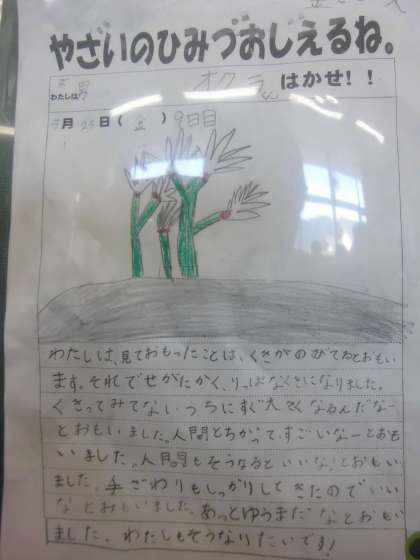 やさいのひみつおしえるね。
わたしは オクラ はかせ！！
5月25日(金) 9日目
わたしは、見ておもったことは、くきがのびてるとおもい
ます。それでせがたかく、りっぱなくきになりました。
くきってみてないうちにすぐ大きくなるんだなー
とおもいました。人間とちがって、すごいなーとおも
いました。人間もそうなるといいな！とおもい
ました。手ざわりもしっかりしてきたのでいい
なとおもいました。あっとゆうまだなとおもい
ました。わたしもそうなりたいです！